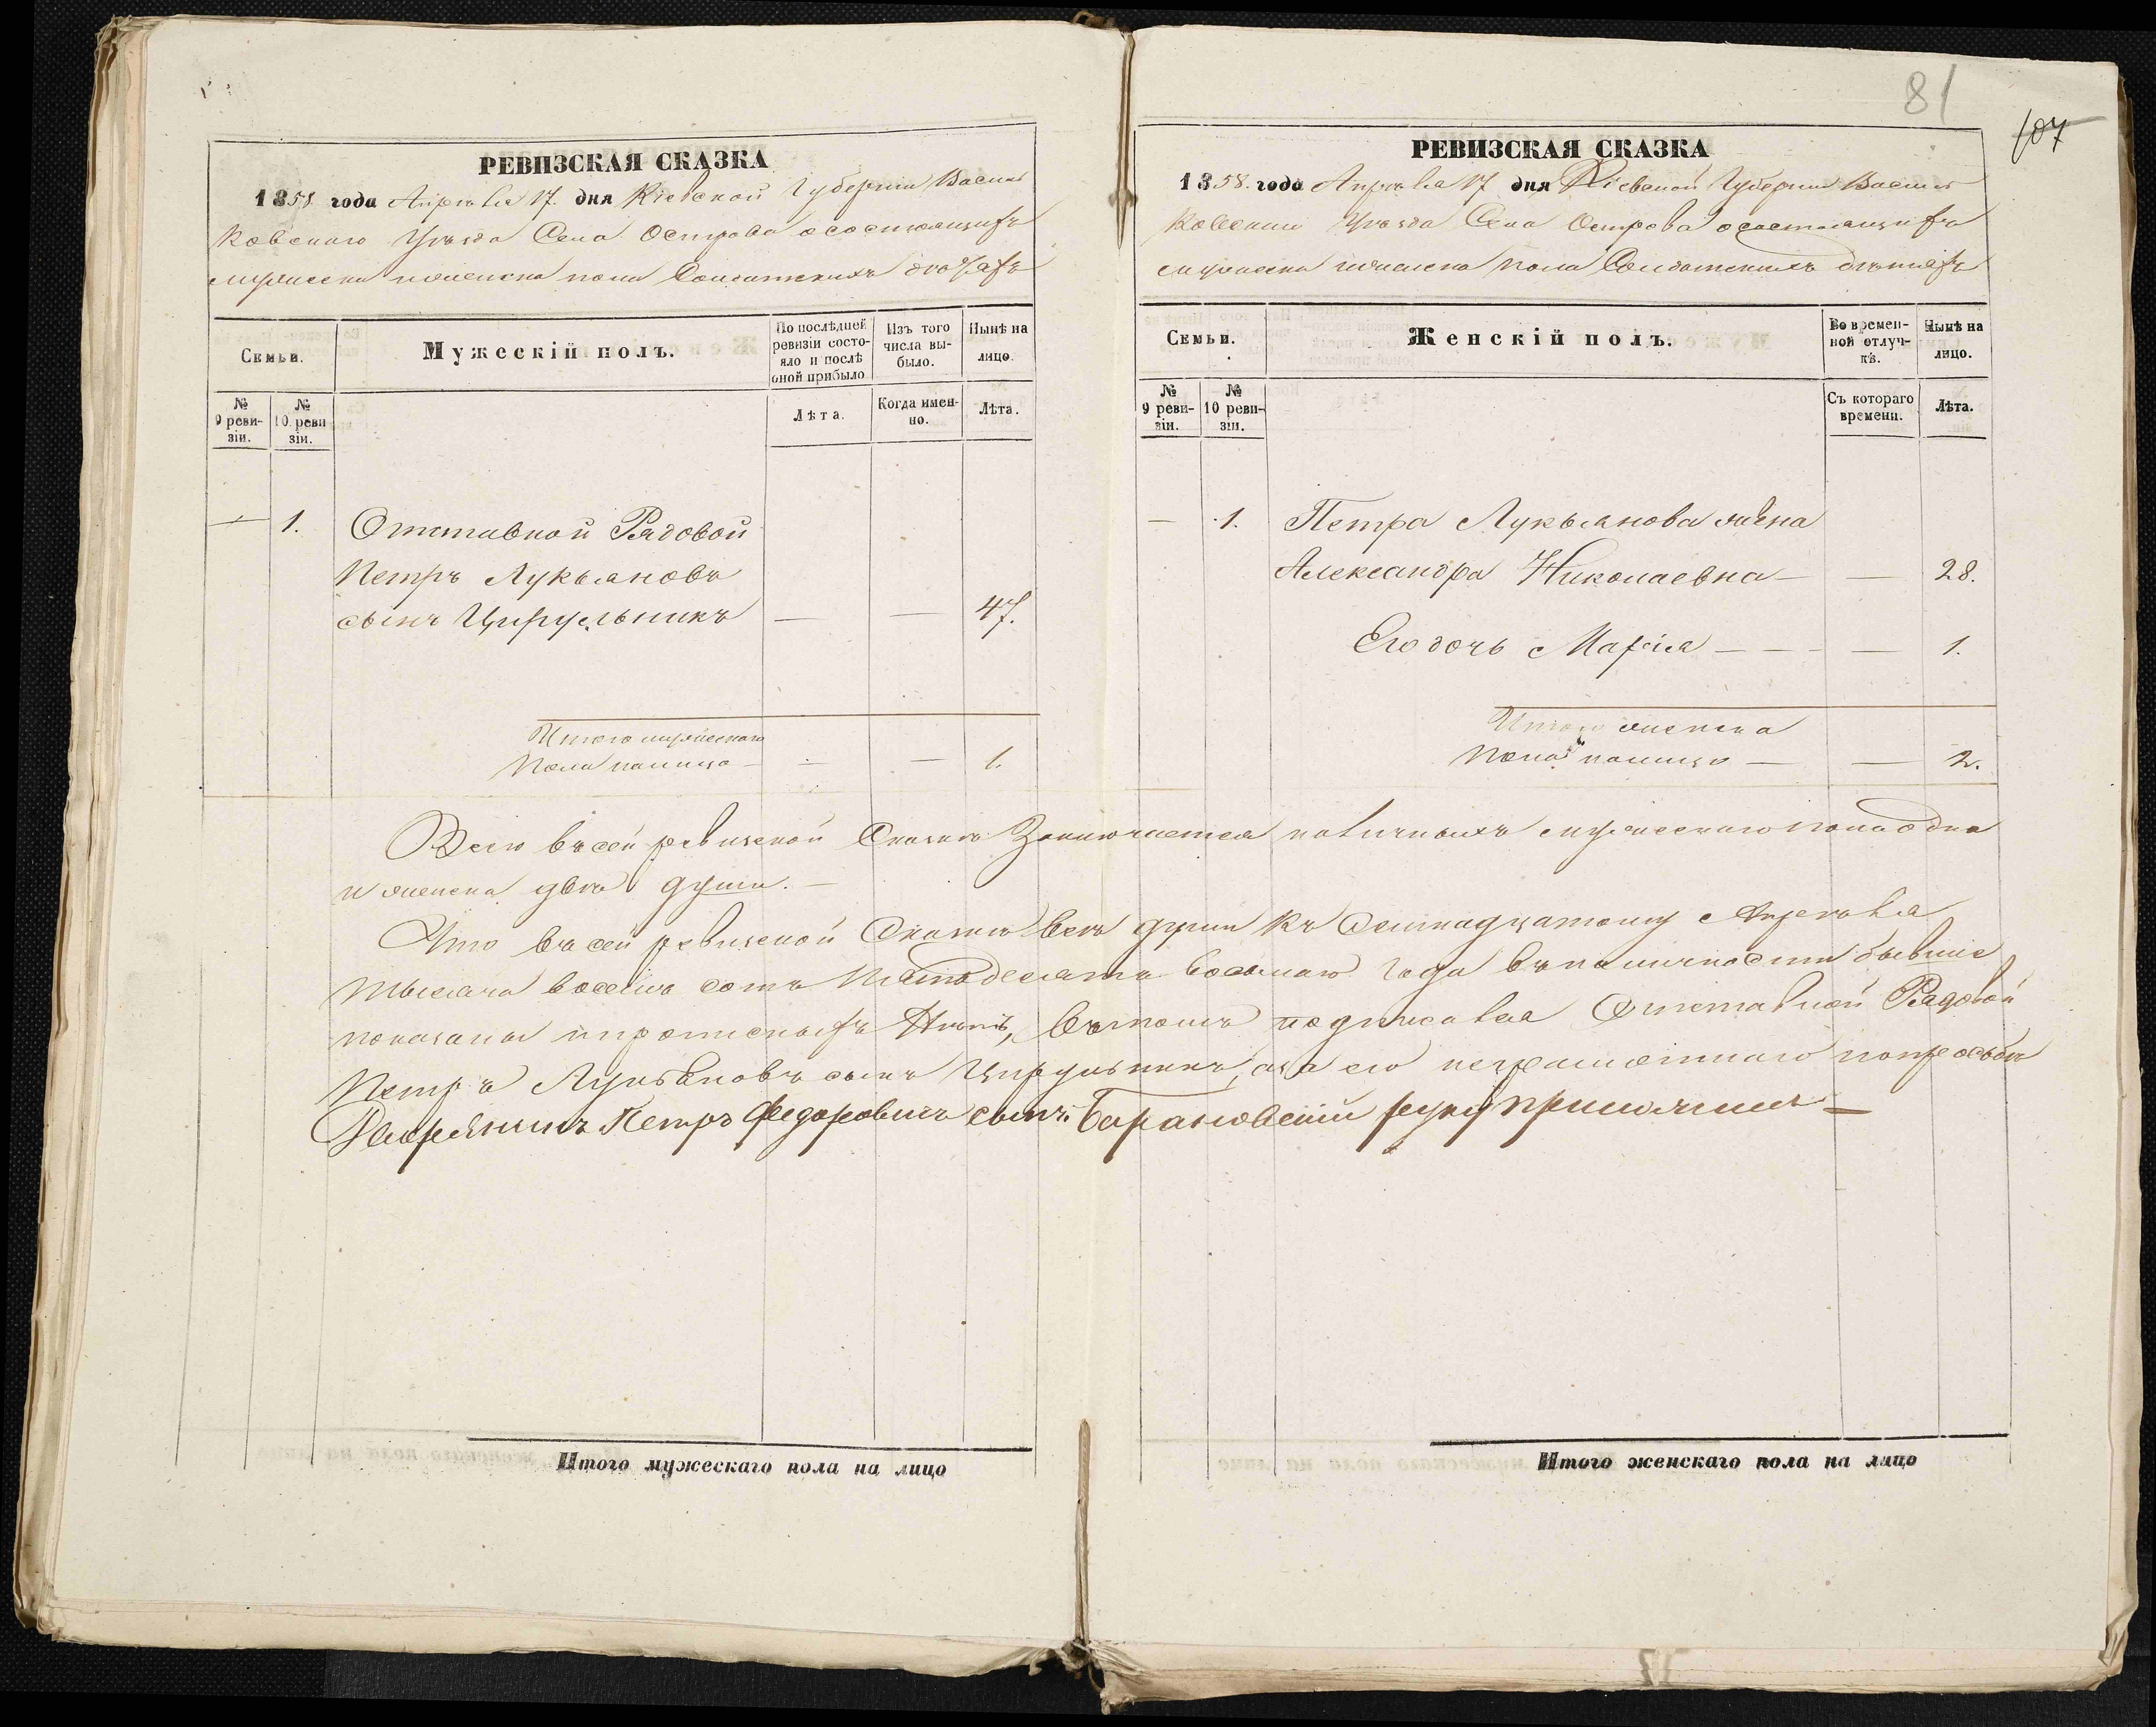 РЕВИЗСКАЯ СКАЗКА
1858 года Апрѣля 17. дня Кіевской Губерніи Василь
ковскаго Уѣзда Села Острова о состоящихъ
мужеска и женска пола Солдатскихъ
Семьи.
Мужескій полъ.
По послѣдней ревизіи состояло и послѣ оной прибыло
Изъ того числа выбыло.
Нынѣ на лицо.
№ 9 ревизіи.
№ 10. ревизіи.
Лѣта.
Когда именно.
Лѣта.
— 1. Отставной Рядовой
Петръ Лукьяновъ
сынъ Цирульникъ — — 47.
Итого мужескаго
пола налицо — — — 1.
81
107
РЕВИЗСКАЯ СКАЗКА
1858. года Апрѣля 17 дня Кіевской Губерніи Василь
ковскаго Уѣзда Села Острова о состоящихъ
мужеска и женска пола Солдатскихъ
Семьи.
Женскій полъ.
Во временной отлучкѣ.
Нынѣ на лицо.
№ 9 ревизіи.
№ 10 ревизіи.
Съ котораго времени.
Лѣта.
— 1. Петра Лукьянова жена
Александра Николаевна — — 28.
Его дочь Марія — — — — 1.
Итого женска
пола налицо — — 2.
Всего въ сей ревизской Сказкѣ Заключается наличныхъ мужескаго пола одна
и женска двѣ души. —
Что въ сей ревизской Сказкѣ всѣ души къ Семнадцатому Апрѣля
тысяча восемь сотъ пятьдесятъ восьмаго года въ наличности бывшіе
показаны и прописныхъ нѣтъ, въ томъ подписался Отставной Рядовой
Петръ Лукьяновъ сынъ Цирульникъ, а за его неграмотнаго по просьбѣ
Дворянинъ Петръ Федоровичъ сынъ Барановскій руку приложилъ —
Итого мужескаго пола на лицо
Итого женскаго пола на лицо